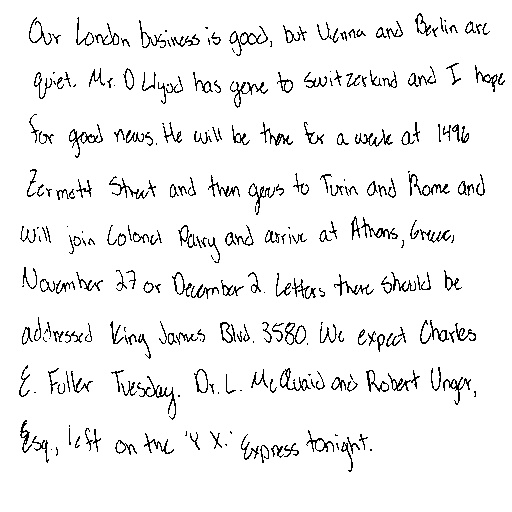 Our London business is good, but Vienna and Berlin are
quiet. Mr. D Llyod has gone to Switzerland and I hope
for good news. He will be there for a week at 1496
Zermott Street and then goes to Turin and Rome and
will join Colonel Parry and arrive at Athens, Greece,
November 27 or December 2. Letters there should be
addressed King James Blvd. 3580. We expect Charles
E. Fuller Tuesday. Dr. L. McQuaid and Robert Unger,
Esq., left on the 'Y X.' Express tonight.